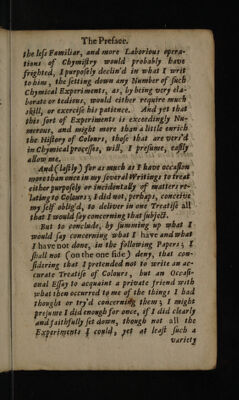 The Preface.
the less Familiar, and more Laborious opera-
tions of Chymistry would probably have
frighted, I purposely declin'd in what I writ
to him, the setting down any Number of such
Chymical Experiments, as, by being very ela-
borate or tedious, would either require much
skill, or exercise his patience. And yet that
this sort of Experiments is exceedingly Nu-
merous, and might more than a little enrich
the History of Colours, those that are vers'd
in Chymical processes, will, I presume, easily
allow me.
And (lastly) for as much as I have occasion
more than once in my several Writings to treat
either purposely or incidentally of matters re-
lating to Colours; I did not, perhaps, conceive
my self oblig'd, to deliver in one Treatise all
that I would say concerning that subject.
But to conclude, by summing up what I
would say concerning what I have and what
I have not done, in the following Papers; I
shall not (on the one side) deny, that con-
sidering that I pretended not to write an ac-
curate Treatise of Colours, but an Occasi-
onal Essay to acquaint a private friend with
what then occurred to me of the things I had
thought or try'd concerning them; I might
presume I did enough for once, if I did clearly
and faithfully set down, though not all the
Experiments I could, yet at least such a
variety